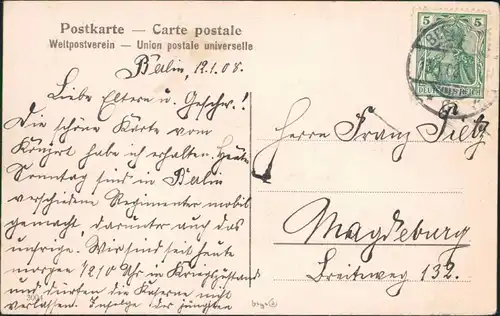 Postkarte — Carte postale
Weltpostverein — Union postale universelle
Berlin, 19.1.08.
Liebe Eltern u. Geschw.!
Die schöne Karte vom
Konzert habe ich erhalten. Heute
Sonntag sind in Berlin
verschiedene Regimenter mobil
gemacht, darunter auch das
unsrige. Wir sind seit heute
morgen 1210 Uhr in Kriegszustand
und dürfen die Kaserne nicht
verlassen. Infolge der jüngsten
5
5
DEUTSCHES REICH
Herrn Franz Tietz
Magdeburg
Breiteweg 139.